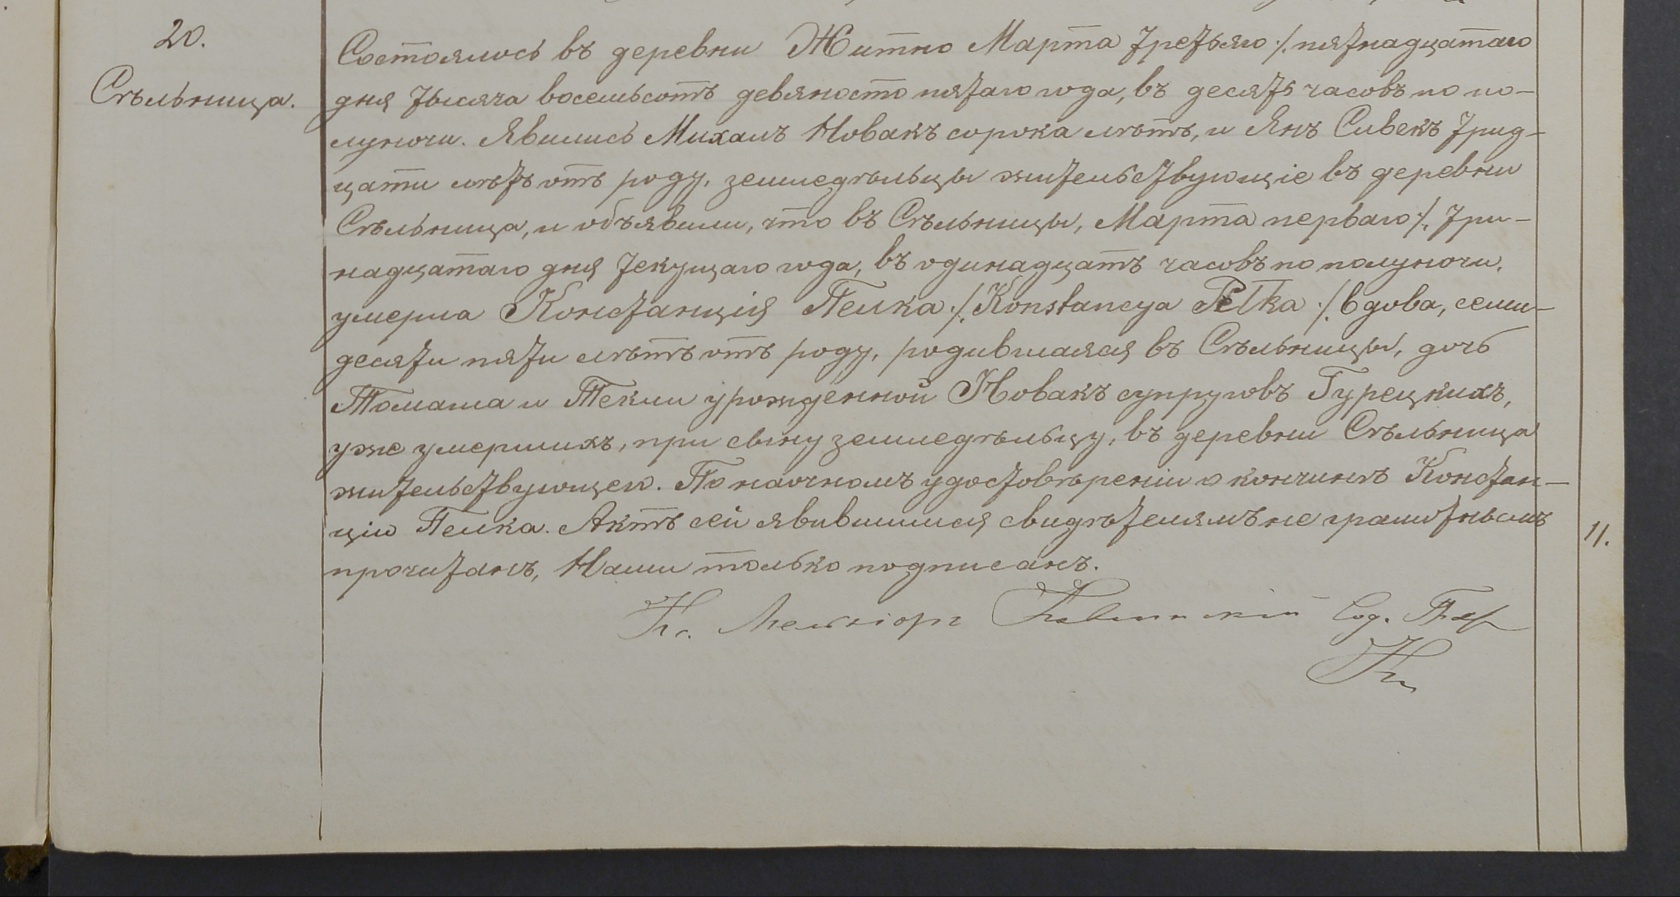 20.
Сѣльница.
Состоялось въ деревни Житно Марта третьяго ./. пятнадцатаго
дня тысяча восемьсотъ девяносто пятаго года, въ десять часовъ по по-
луночи. Явились Михалъ Новакъ сорока лѣтъ, и Янъ Сивекъ трид-
цати лѣтъ отъ роду, земледѣльцы жительствующіе въ деревни
Сѣльница, и объявили, что въ Сѣльницы, Марта перваго ./. три-
надцатаго дня текущаго года, въ одинадцать часовъ по полуночи,
умерла Констанція Пелка ./. Konstancya Pełka ./. вдова, семи-
десяти пяти лѣтъ отъ роду, родившаяся въ Сѣльницы, дочь
Томаша и Текли урожденной Новакъ супруговъ Гурецкихъ,
уже умершихъ, при сыну земледѣльцу, въ деревни Сѣльница
жительствующею. По наочномъ удостовѣреніи о кончинѣ Констан-
ціи Пелка. Актъ сей явившимися свидѣтелямъ не грамотнымъ
прочитанъ, Нами только подписанъ.
11.
Кс. Мельхіоръ